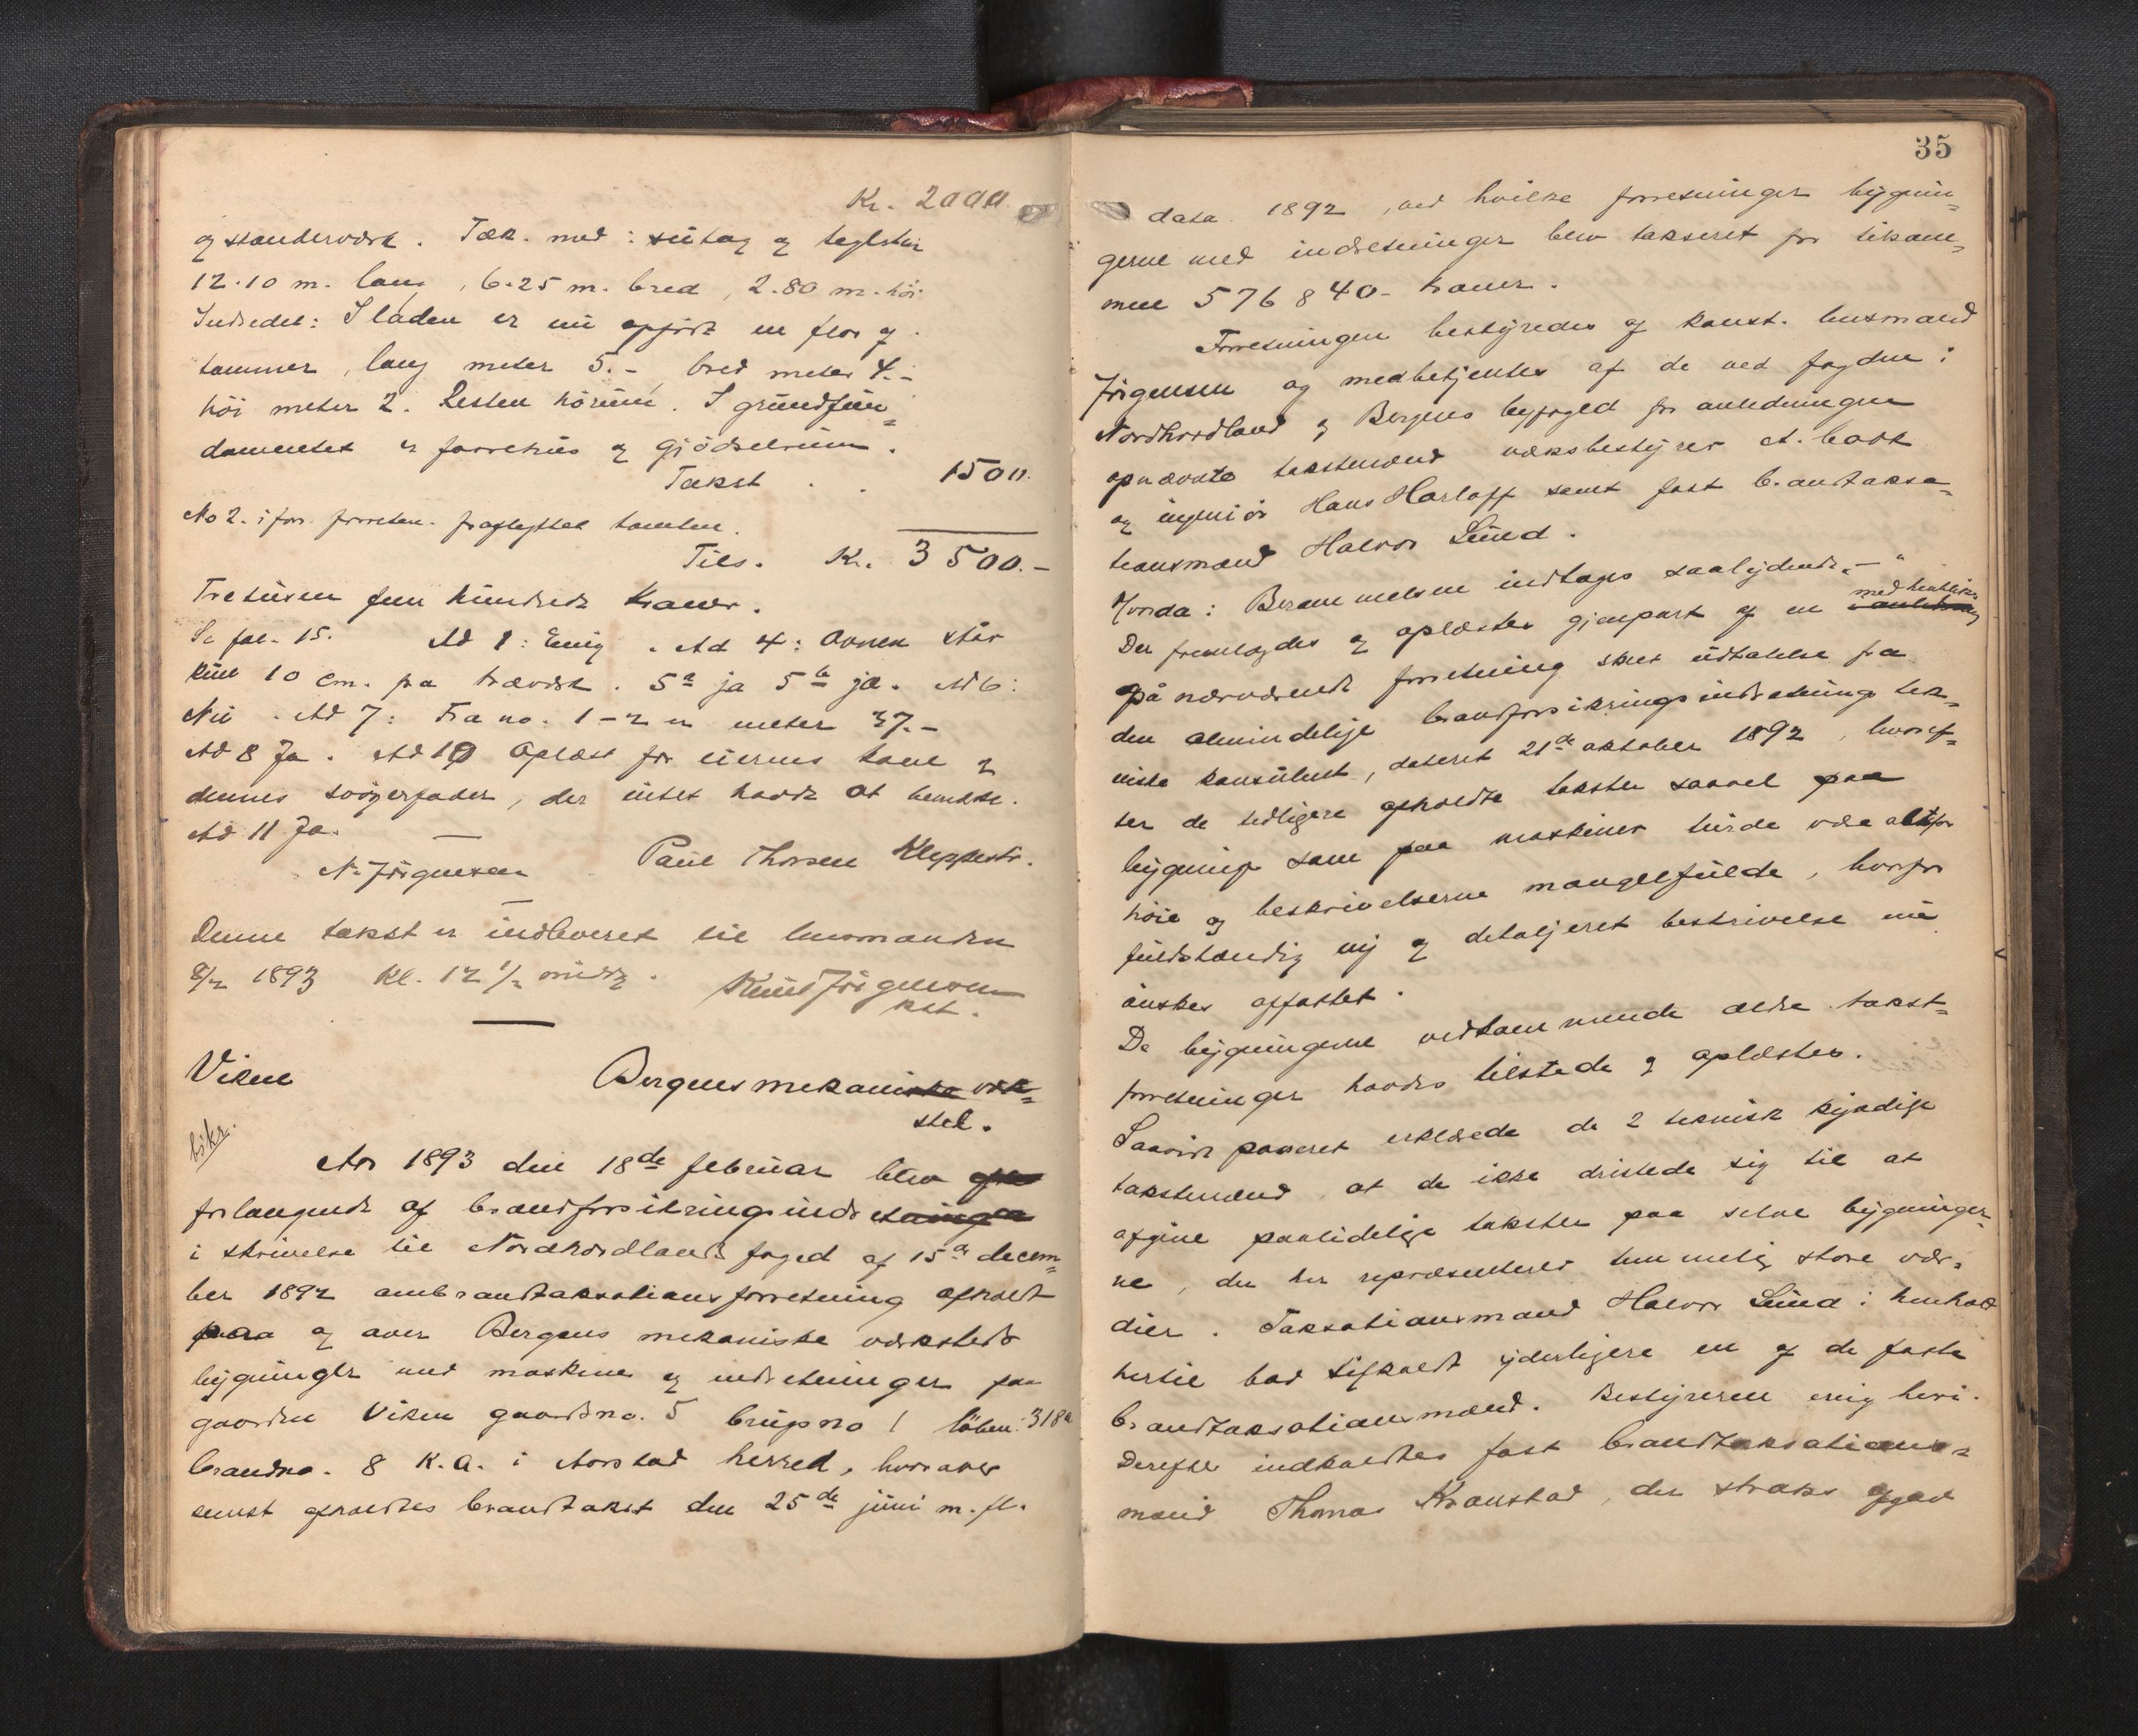 Kr. 2000.
og stænderværk. Tæk. med: sutag og teglsten
12.10 m. lang, 6.25 m. bred, 2.80 m. høi
Indredet: I laden er nu opført en flor af
tømmer, lang meter 5.-, bred meter 4.-
høi meter 2. Resten hørum. I grundfun-
damentet er faarehus og gjødselrum.
Takst . . 1500.
No 2. i forr. forretn. fraflyttet tomten.
Tils. Kr. 3500.-
Tretusen fem hundrede kroner.
Se fol. 15. Ad 1: Enig. Ad 4: Ovnen står
kun 10 cm. fra træværk. 5a ja 5b ja. Ad 6:
Nei. Ad 7: Fra no. 1-2 er meter 37.-
Ad 8 Ja. Ad 10 Oplæst for eierens kone og
dennes svigerfader, der intet havde at bemærke.
Ad 11 Ja.
N. Jörgensen Paul Thorsen Kleppestø.
Denne takst er indleveret til lensmanden
8/2 1893 Kl. 12 1/2 midd. Knud Jörgensen
kst.
Viken Bergens mekaniske værk-
sted.
Aar 1893 den 18de februar blev
forlangende af brandforsikringsindretningen
i skrivelse til Nordhordlands foged af 15de decem-
ber 1892 ombrandtaksationsforretning afholdt
paa og over Bergens mekaniske værksteds
bygninger med maskiner og indretninger paa
gaarden Viken gaardsno. 5 brugsno 1 løben. 318a
brandno. 8 K.a. i Aarstad herred, hvorover
senest afholdtes brandtakst den 25de juni m. fl.
35
data 1892, ved hvilke forretninger bygnin-
gerne med indretninger blev takseret for tilsam-
men 576840- kroner.
Forretningen bestyredes af konst. lensmand
Jörgensen og medbetjentes af de ved fogden i
Nordhordland og Bergens byfoged for anledningen
opnævnte takstmænd værksbestyrer A.
og ingeniör Hans Harloff samt fast brandtaksa-
tionsmand Halvor Lund.
Hvorda: Berammelsen indtages saalydende "—"
Der fremlagdes og oplæstes gjenpart af en
på nærværende forretning sket udtalelse fra
den almindelige brandforsikringsindretnings tek-
niske konsulent, dateret 21de oktober 1892, hvoref-
ter de tidligere afholdte takster saavel paa
bygning som paa maskiner turde være altfor
høie og beskrivelserne mangelfulde, hvorfor
fuldstændig ny og detaljeret beskrivelse nu
ønskes affattet.
De bygningerne vedkommende ældre takst-
forretninger havdes tilstede og oplæstes.
Saavidt passeret erklærede de 2 teknisk kyndige
takstmænd at de ikke dristede sig til at
afgive paalidelige takster paa selve bygninger-
ne, der her repræsenteres temmelig store vær-
dier. Taksationsmand Halvor Lund i henhold
hertil bad tilkaldt yderligere en af de faste
brandtaksationsmænd. Bestyreren enig heri.
Derefter indkaldtes fast brandtaksations-
mand Thomas Kronstad, der straks afgav